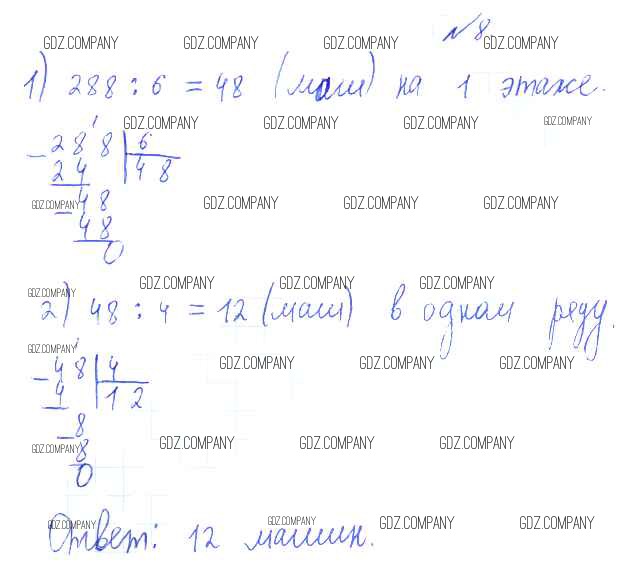 GDZ.COMPANY GDZ.COMPANY GDZ.COMPANY GDZ.COMPANY
№8
1) 288 : 6 = 48 (маш) на 1 этаже.
GDZ.COMPANY GDZ.COMPANY GDZ.COMPANY GDZ.COMPANY
288 | 6
24 | 48
GDZ.COMPANY 48 GDZ.COMPANY GDZ.COMPANY GDZ.COMPANY
48
0
GDZ.COMPANY GDZ.COMPANY GDZ.COMPANY GDZ.COMPANY
2) 48 : 4 = 12 (маш) в одном ряду.
GDZ.COMPANY GDZ.COMPANY GDZ.COMPANY GDZ.COMPANY
48 | 4
4 | 12
8
GDZ.COMPANY 8 GDZ.COMPANY GDZ.COMPANY GDZ.COMPANY
0
GDZ.COMPANY GDZ.COMPANY GDZ.COMPANY GDZ.COMPANY
Ответ: 12 машин.